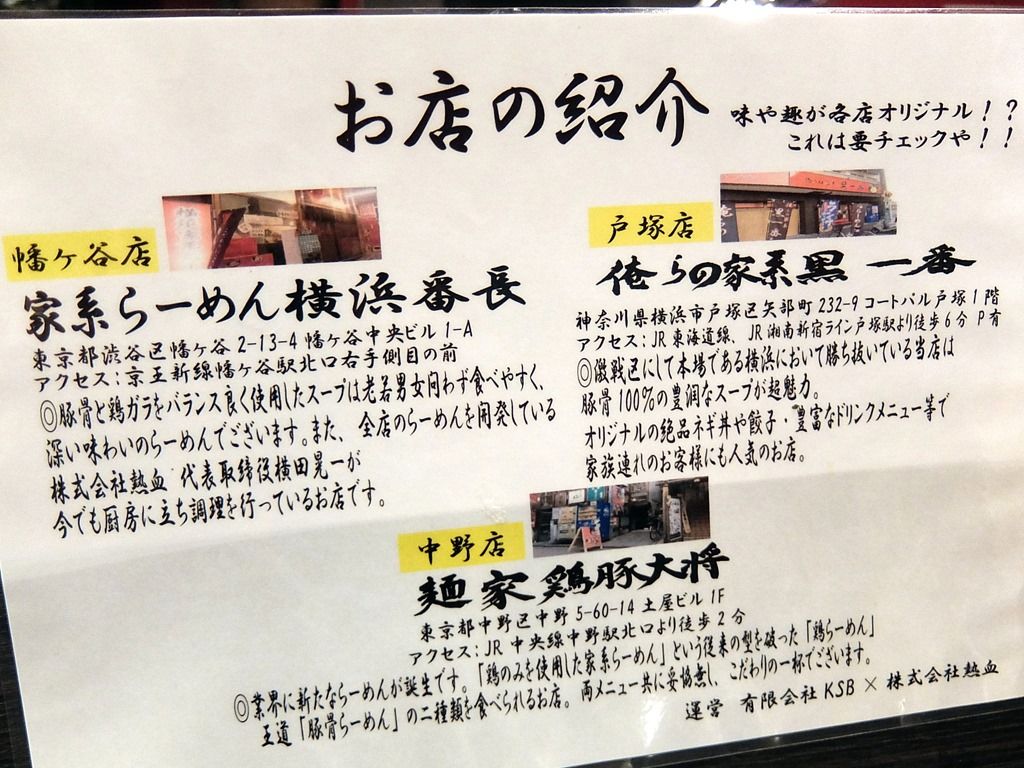 お店の紹介
味や趣が各店オリジナル！？
これは要チェックや！！
幡ヶ谷店
家系らーめん横浜番長
東京都渋谷区幡ヶ谷 2-13-4 幡ヶ谷中央ビル 1-A
アクセス：京王新線幡ヶ谷駅北口右手側目の前
◎豚骨と鶏ガラをバランス良く使用したスープは老若男女問わず食べやすく、
深い味わいのらーめんでございます。また、全店のらーめんを開発している
株式会社熱血 代表取締役横田晃一が
今でも厨房に立ち調理を行っているお店です。
戸塚店
俺らの家系黒一番
神奈川県横浜市戸塚区矢部町 232-9 コートパル戸塚 1 階
アクセス：JR 東海道線、JR 湘南新宿ライン戸塚駅より徒歩 6 分 P 有
◎激戦区にして本場である横浜において勝ち抜いている当店は
豚骨 100％の豊潤なスープが超魅力。
オリジナルの絶品ネギ丼や餃子・豊富なドリンクメニュー等で
家族連れのお客様にも人気のお店。
中野店
麺家鶏豚大将
東京都中野区中野 5-60-14 土屋ビル 1F
アクセス：JR 中央線中野駅北口より徒歩 2 分
◎業界に新たならーめんが誕生です。「鶏のみを使用した家系らーめん」という従来の型を破った「鶏らーめん」
王道「豚骨らーめん」の二種類を食べられるお店。両メニュー共に妥協無し、こだわりの一杯でございます。
運営 有限会社 KSB × 株式会社熱血